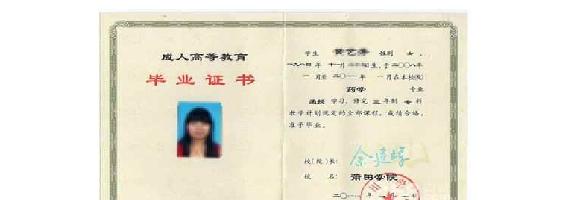 成人高等教育
毕业证书
学生 黄艺 性别 女
一九八四年十一月 生，于二〇〇八年
一月至二〇一一年一月在本校(院)
药学 专业
函授 学习，修完 三 年制 专科
教学计划规定的全部课程，成绩合格，
准予毕业。
校(院)长：
校 名： 莆田学院
二〇一